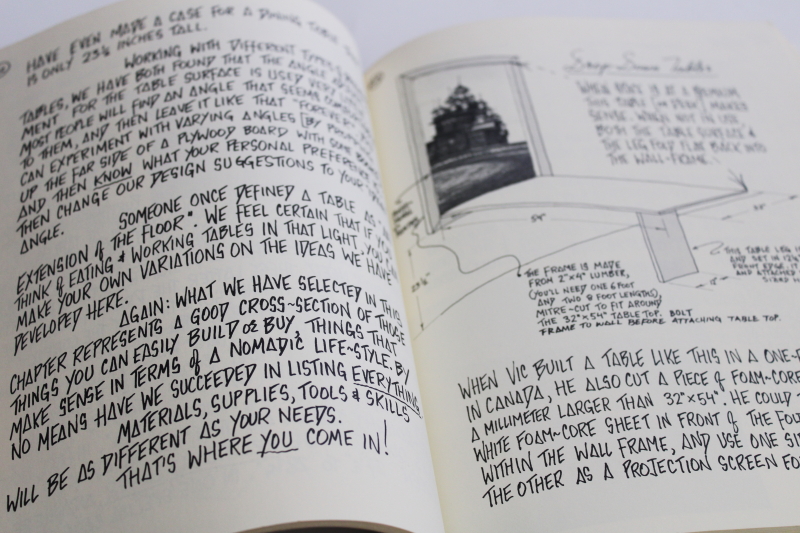 HAVE EVEN MADE A CASE FOR A DINING TABLE
IS ONLY 23¼ INCHES TALL.
WORKING WITH DIFFERENT TYPES
TABLES, WE HAVE BOTH FOUND THAT THE ANGLE
MENT FOR THE TABLE SURFACE IS USED VERY
MOST PEOPLE WILL FIND AN ANGLE THAT SEEMS
TO THEM, AND THEN LEAVE IT LIKE THAT "FOREVER".
CAN EXPERIMENT WITH VARYING ANGLES [BY
UP THE FAR SIDE OF A PLYWOOD BOARD WITH SOME
AND THEN KNOW WHAT YOUR PERSONAL PREFERENCE
THEN CHANGE OUR DESIGN SUGGESTIONS TO YOUR
ANGLE.
SOMEONE ONCE DEFINED A TABLE AS
EXTENSION of THE FLOOR". WE FEEL CERTAIN THAT IF YOU
THINK of EATING & WORKING TABLES IN THAT LIGHT, YOU CAN
MAKE YOUR OWN VARIATIONS ON THE IDEAS WE HAVE
DEVELOPED HERE.
AGAIN: WHAT WE HAVE SELECTED IN THIS
CHAPTER REPRESENTS A GOOD CROSS~SECTION OF THOSE
THINGS YOU CAN EASILY BUILD or BUY, THINGS THAT
MAKE SENSE IN TERMS of A NOMADIC LIFE~STYLE. BY
NO MEANS HAVE WE SUCCEEDED IN LISTING EVERYTHING.
MATERIALS, SUPPLIES, TOOLS & SKILLS
WILL BE AS DIFFERENT AS YOUR NEEDS.
THAT'S WHERE YOU COME IN!
WHEN SPACE IS AT A PREMIUM
THIS TABLE MAKES
SENSE. WHEN NOT IN USE
BOTH THE TABLE SURFACE &
THE LEG FOLD FLAT BACK INTO
THE WALL~FRAME.
54"
THE FRAME IS MADE
FROM 2"x4" LUMBER,
(YOU'LL NEED ONE 6 FOOT
AND TWO 8 FOOT LENGTHS),
MITRE~CUT TO FIT AROUND
THE 32"x54" TABLE TOP. BOLT
FRAME TO WALL BEFORE ATTACHING TABLE TOP.
THE TABLE LEG
AND SET IN
FRONT EDGE
AND ATTACHED
WHEN VIC BUILT A TABLE LIKE THIS IN A
IN CANADA, HE ALSO CUT A PIECE of FOAM~CORE
A MILLIMETER LARGER THAN 32"x54". HE COULD
WHITE FOAM~CORE SHEET IN FRONT of THE
WITHIN THE WALL FRAME, AND USE ONE
THE OTHER AS A PROJECTION SCREEN